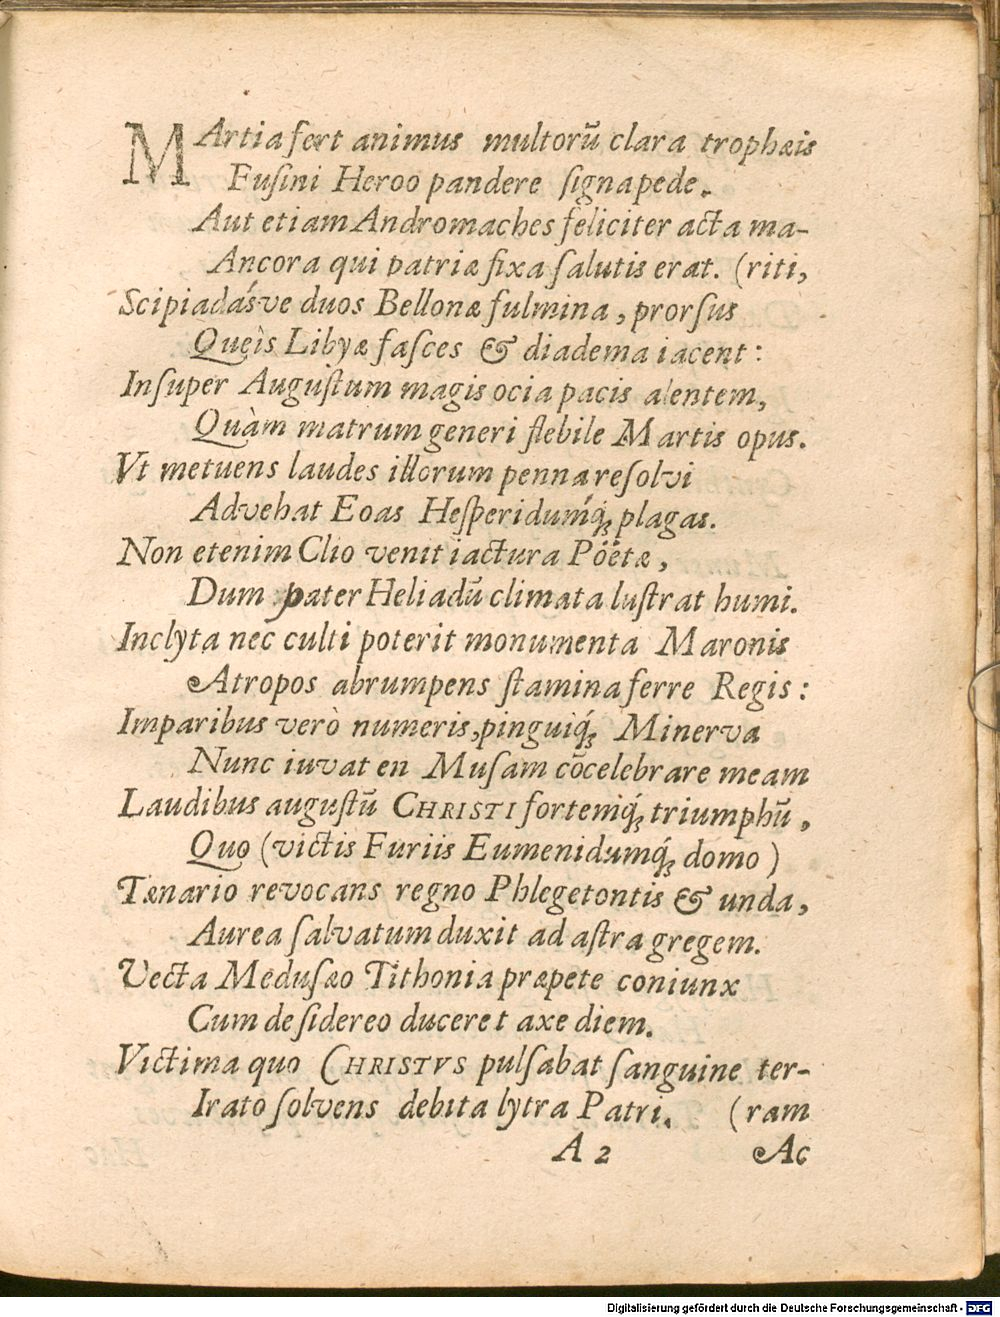 MArtia fert animus multorũ clara trophæis
Fusini Heroo pandere signa pede.
Aut etiam Andromaches feliciter acta ma-
Ancora qui patriæ fixa salutis erat. (riti,
Scipiadásve duos Bellonæ fulmina, prorsus
Queìs Libyæ fasces & diadema iacent:
Insuper Augustum magis ocia pacis alentem,
Quàm matrum generi flebile Martis opus.
Vt metuens laudes illorum penna resolvi
Advehat Eoas Hesperidumq́; plagas.
Non etenim Clio venit iactura Pöëtæ,
Dum pater Heliadũ climata lustrat humi.
Inclyta nec culti poterit monumenta Maronis
Atropos abrumpens stamina ferre Regis:
Imparibus verò numeris, pinguiq́; Minerva
Nunc iuvat en Musam cõcelebrare meam
Laudibus augustũ CHRISTI fortemq́; triumphũ,
Quo (victis Furiis Eumenidumq́; domo)
Tænario revocans regno Phlegetontis & unda,
Aurea salvatum duxit ad astra gregem.
Vecta Medusæo Tithonia præpete coniunx
Cum de sidereo duceret axe diem.
Victima quo CHRISTVS pulsabat sanguine ter-
Irato solvens debita lytra Patri. (ram
A 2 Ac
Digitalisierung gefördert durch die Deutsche Forschungsgemeinschaft - DFG